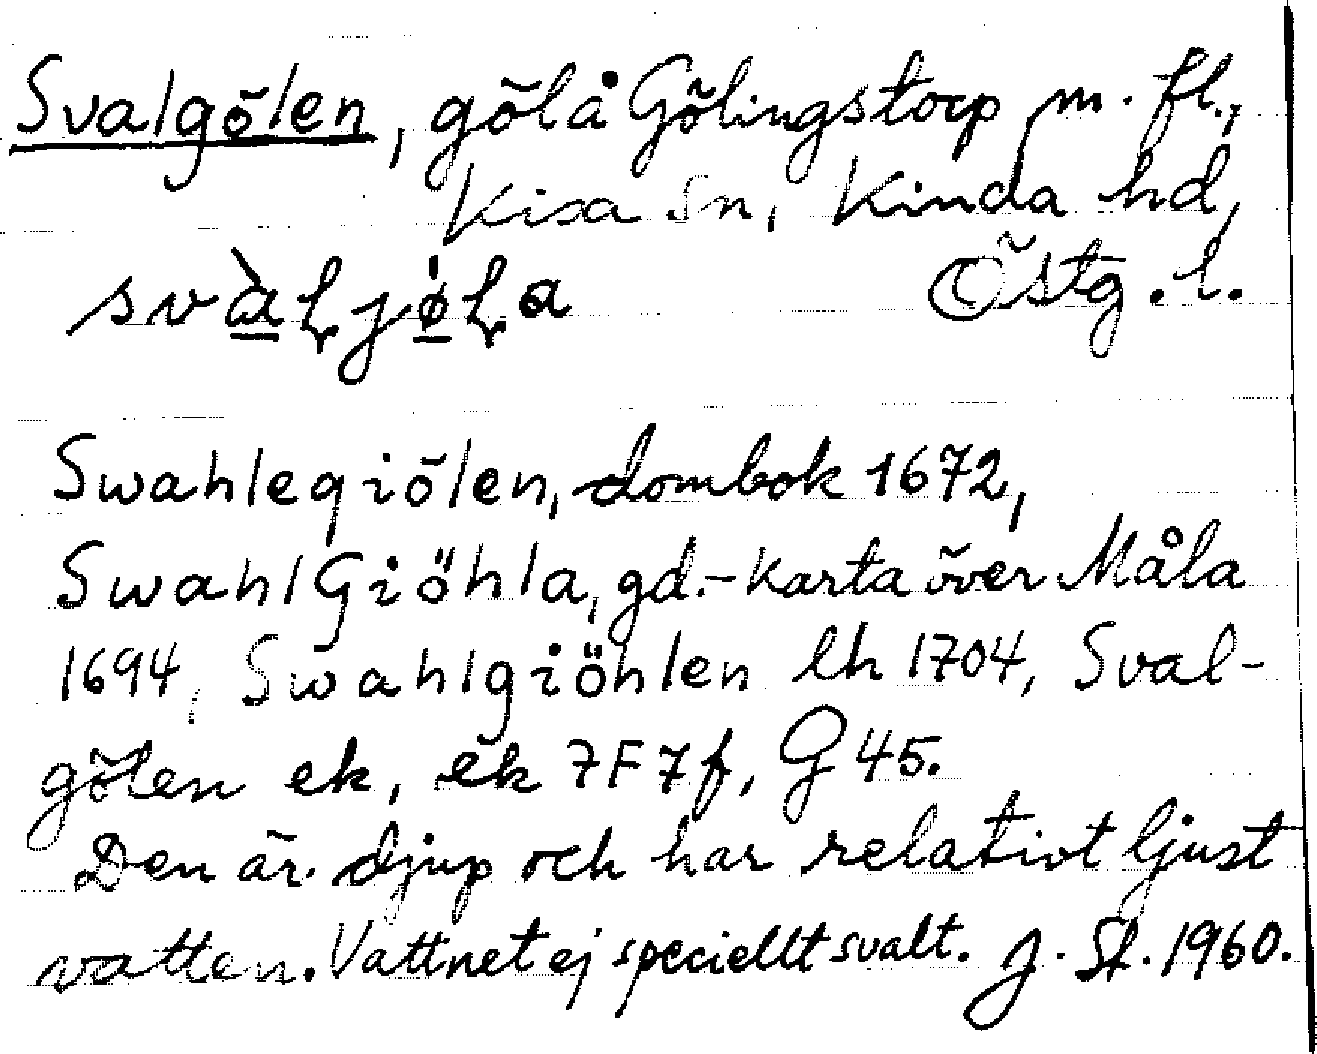 Svalgölen, göl å Gölingstorp m. fl.,
Kisa sn, Kinda hd,
svàljö̀la Östg. l.
Swahlegiölen, dombok 1672,
SwahlGiöhla, gd.-karta över Måla
1694, Swahlgiöhlen lh 1704, Sval-
gölen ek, ek 7F7f, G 45.
Den är djup och har relativt ljust
vatten. Vattnet ej speciellt svalt. J. St. 1960.